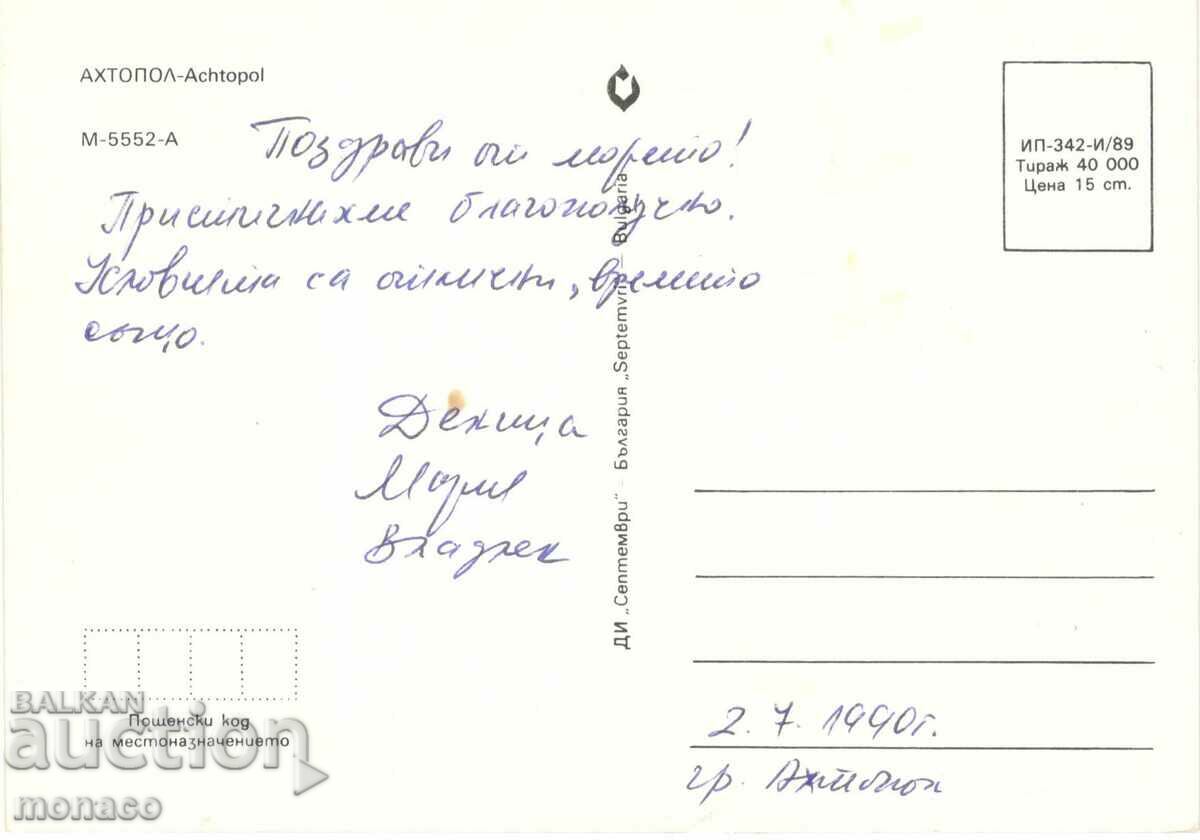 АХТОПОЛ-Achtopol
М-5552-А
Поздрави от морето!
Пристигнахме благополучно.
Условията са отлични, времето
също.
Деница
Мария
Владлен
Пощенски код
на местоназначението
ДИ „Септември" – България „Septemvri" – Bulgaria
ИП-342-И/89
Тираж 40 000
Цена 15 ст.
2.7.1990г.
гр. Ахтопол
BALKAN
auction
monaco